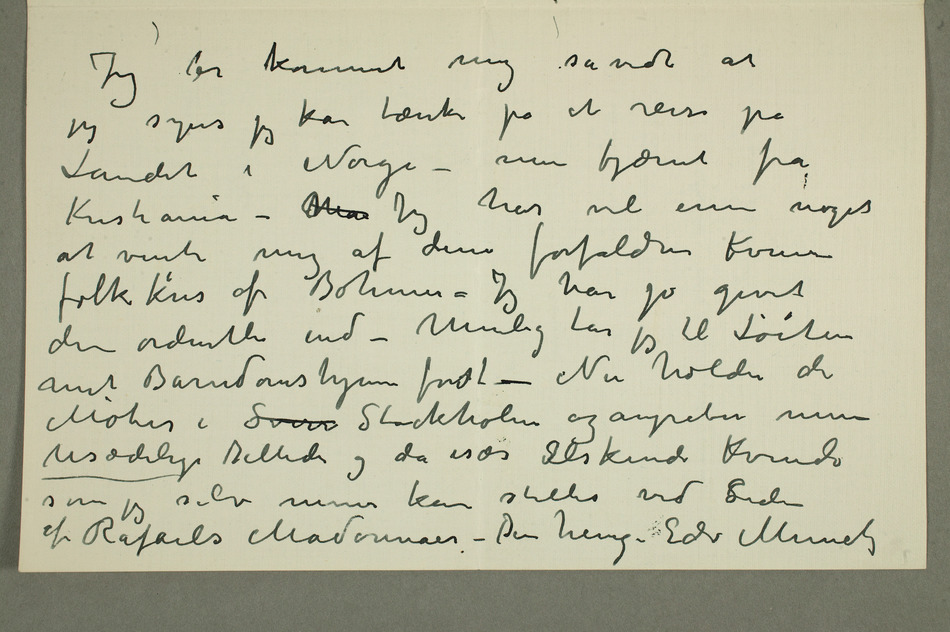 Jeg er kommet mig såvidt at
jeg synes jeg kan tænke på et reise på
Landet i Norge – men fjærnt fra
Kristiania – Man Jeg har vel ennu noget
at vente mig af denne forfaldne Kvinne
folk Kris af Böhmer – Jeg har jo givet
den ordentli ind – Mulig tar jeg til Löiten
mit Barndomshjem först – Nu holder de
Möter i Sver Stockholm og angriber mine
usædelige Billeder og da især Elskende Kvinde
som jeg selv mener kan stilles ved Siden
af Rafaels Madonnaer. – Din heng. Edv Munch